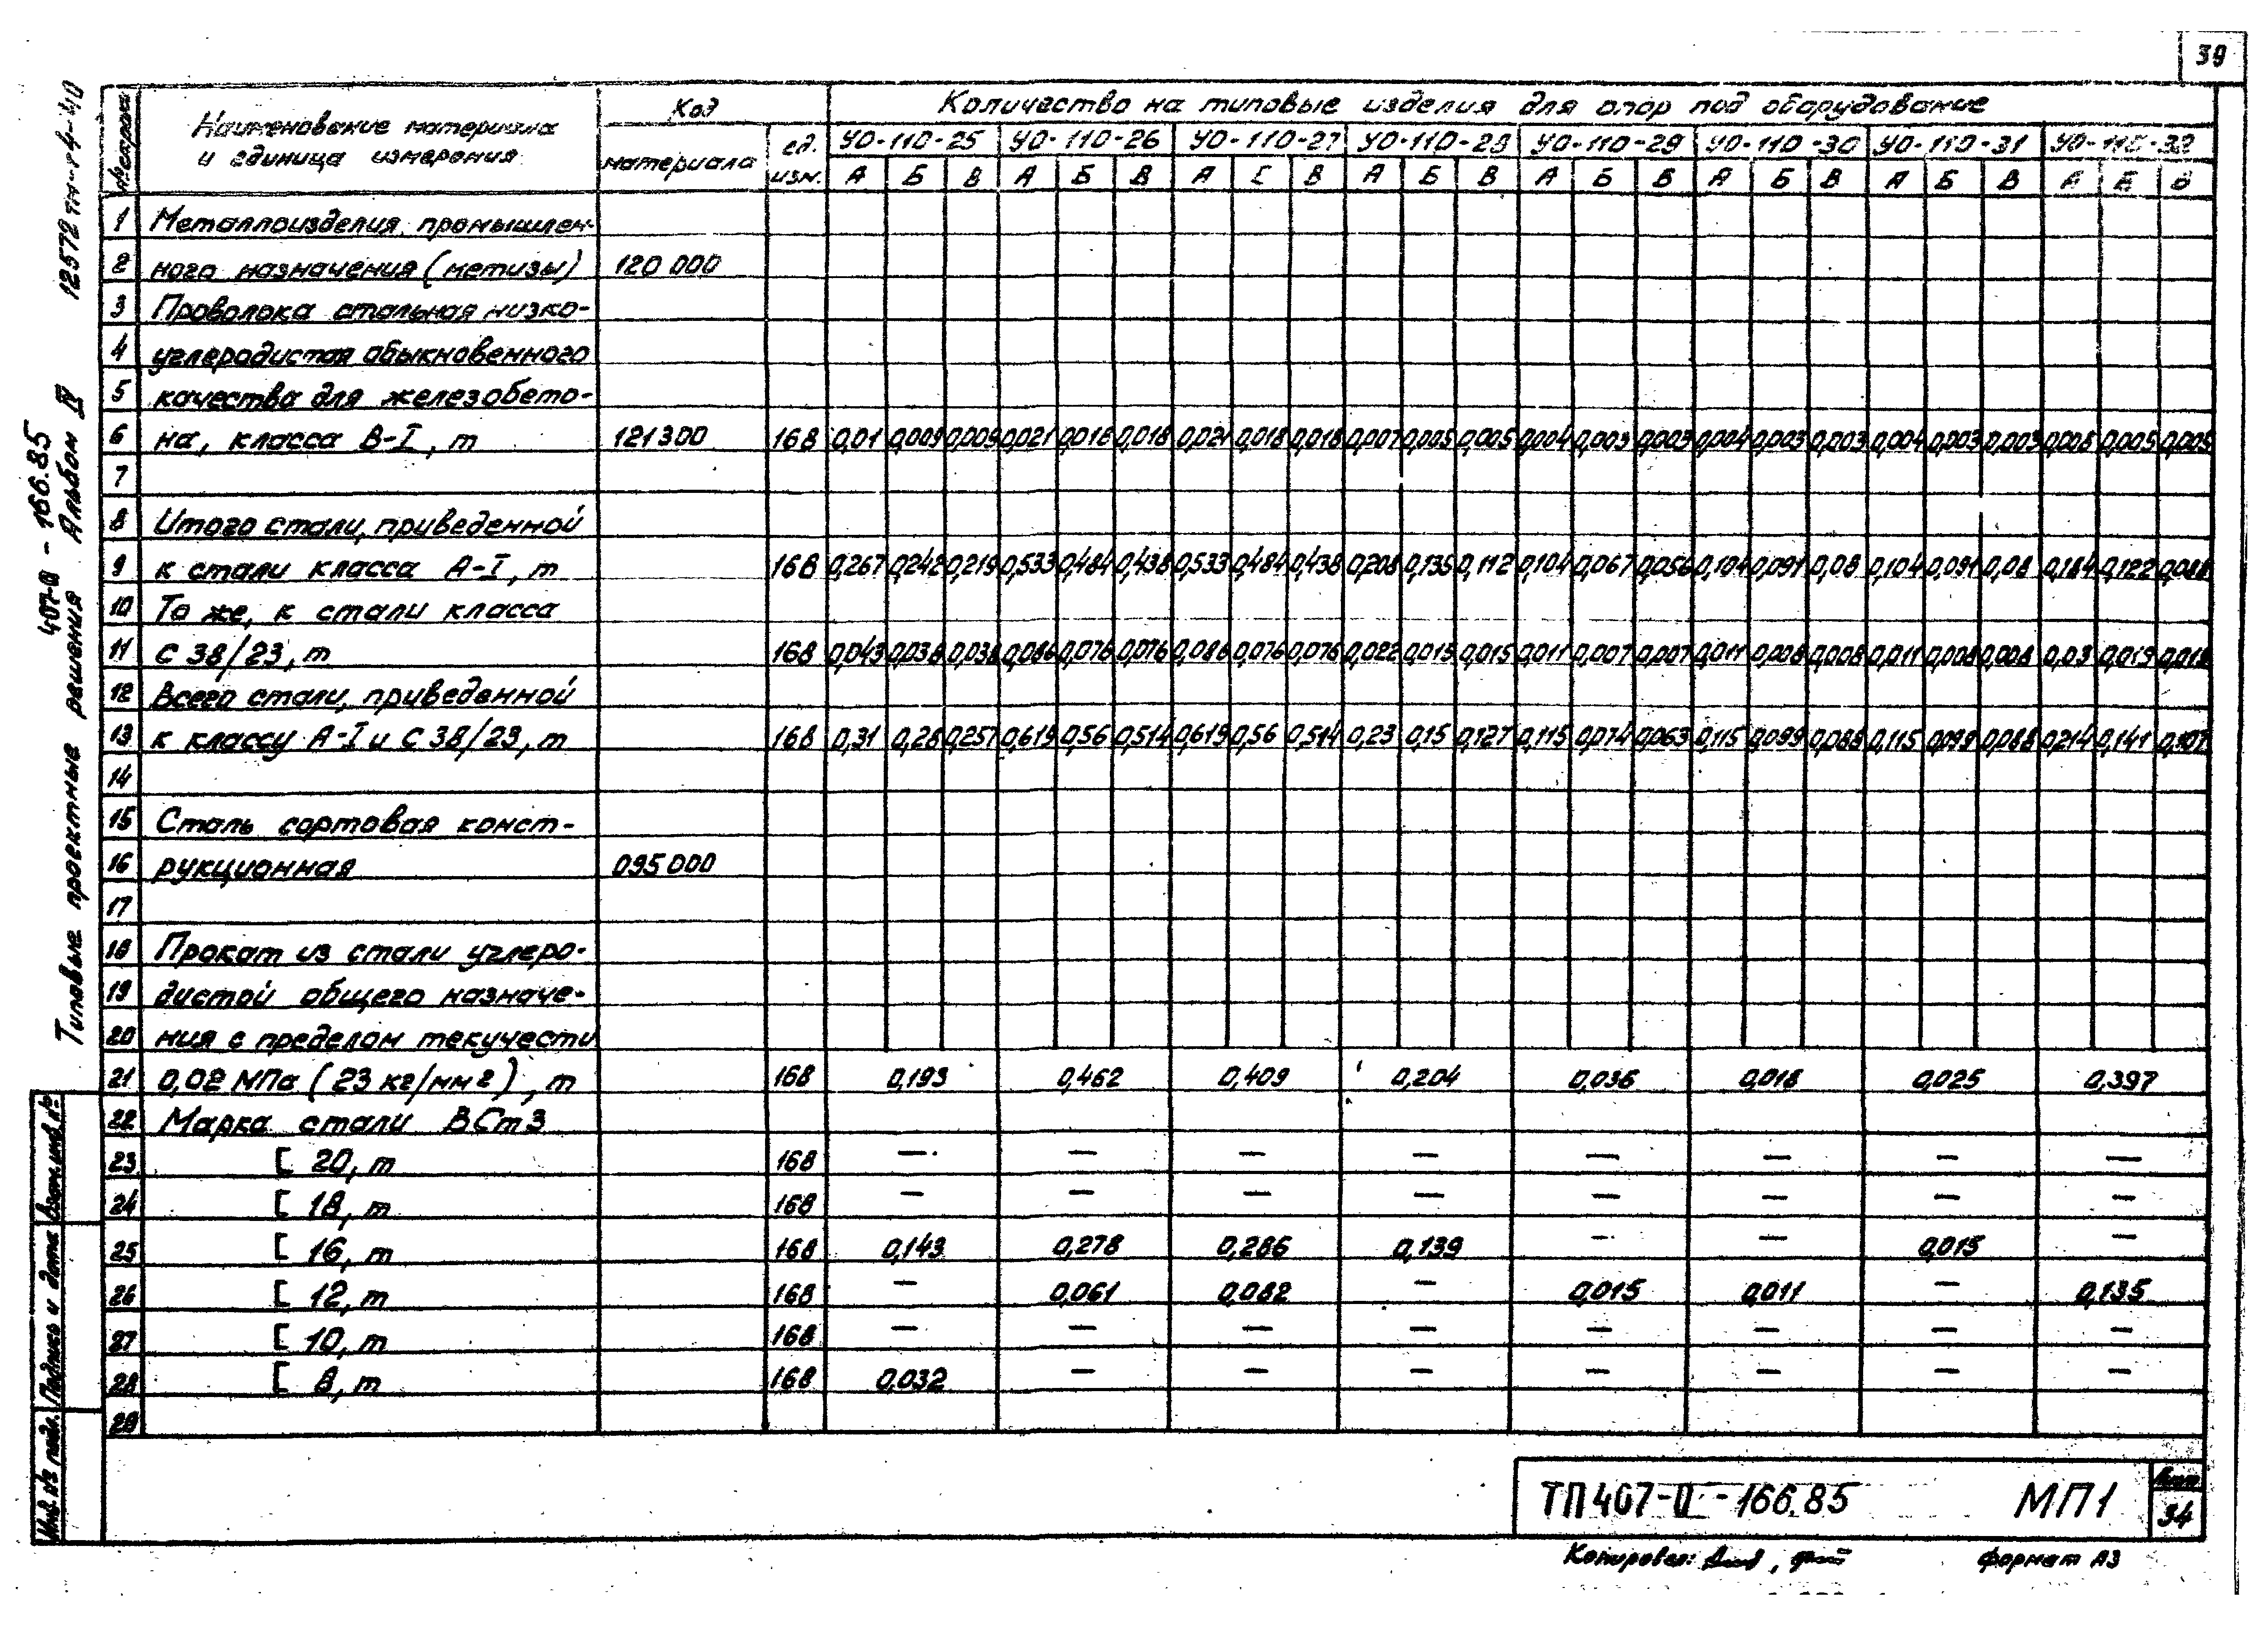 39
12572 тм-т4-40
407-0-166.85
Типовые проектные решения Альбом IV
№ строки
Наименование материала
и единица измерения
Код
материала
ед.
изм.
Количество на типовые изделия для опор под оборудование
УО-110-25 УО-110-26 УО-110-27 УО-110-28 УО-110-29 УО-110-30 УО-110-31 УО-110-32
А Б В А Б В А Б В А Б В А Б Б А Б В А Б В А Б В
1 Металлоизделия промышлен-
2 ного назначения (метизы) 120 000
3 Проволока стальная низко-
4 углеродистая обыкновенного
5 качества для железобето-
6 на, класса В-I, т 121300 168 0,01 0,009 0,009 0,021 0,018 0,018 0,021 0,018 0,018 0,007 0,005 0,005 0,004 0,003 0,003 0,004 0,003 0,003 0,004 0,003 0,003 0,008 0,005 0,005
7
8 Итого стали, приведенной
9 к стали класса А-I, т 168 0,267 0,242 0,219 0,533 0,484 0,438 0,533 0,484 0,438 0,208 0,135 0,112 0,104 0,067 0,056 0,104 0,091 0,08 0,104 0,091 0,08 0,184 0,122 0,088
10 То же, к стали класса
11 С 38/23, т 168 0,043 0,038 0,038 0,086 0,076 0,076 0,086 0,076 0,076 0,022 0,015 0,015 0,011 0,007 0,007 0,011 0,008 0,008 0,011 0,008 0,008 0,03 0,019 0,019
12 Всего стали, приведенной
13 к классу А-I и С 38/23, т 168 0,31 0,28 0,257 0,619 0,56 0,514 0,619 0,56 0,514 0,23 0,15 0,127 0,115 0,074 0,063 0,115 0,099 0,088 0,115 0,099 0,088 0,214 0,141 0,107
14
15 Сталь сортовая конст-
16 рукционная 095 000
17
18 Прокат из стали углеро-
19 дистой общего назначе-
20 ния с пределом текучести
21 0,02 МПа (23 кг/мм2), т 168 0,193 0,462 0,409 0,204 0,036 0,018 0,025 0,397
22 Марка стали ВСт3
23 [ 20, т 168 — — — — — — — —
24 [ 18, т 168 — — — — — — — —
25 [ 16, т 168 0,143 0,278 0,286 0,139 — — 0,015 —
26 [ 12, т 168 — 0,061 0,082 — 0,015 0,011 — 0,135
27 [ 10, т 168 — — — — — — — —
28 [ 8, т 168 0,032 — — — — — — —
29
Взам. инв. №
Подпись и дата
Инв. № подл.
ТП 407-0-166.85 МП1
Лист
34
Копировал: формат А3